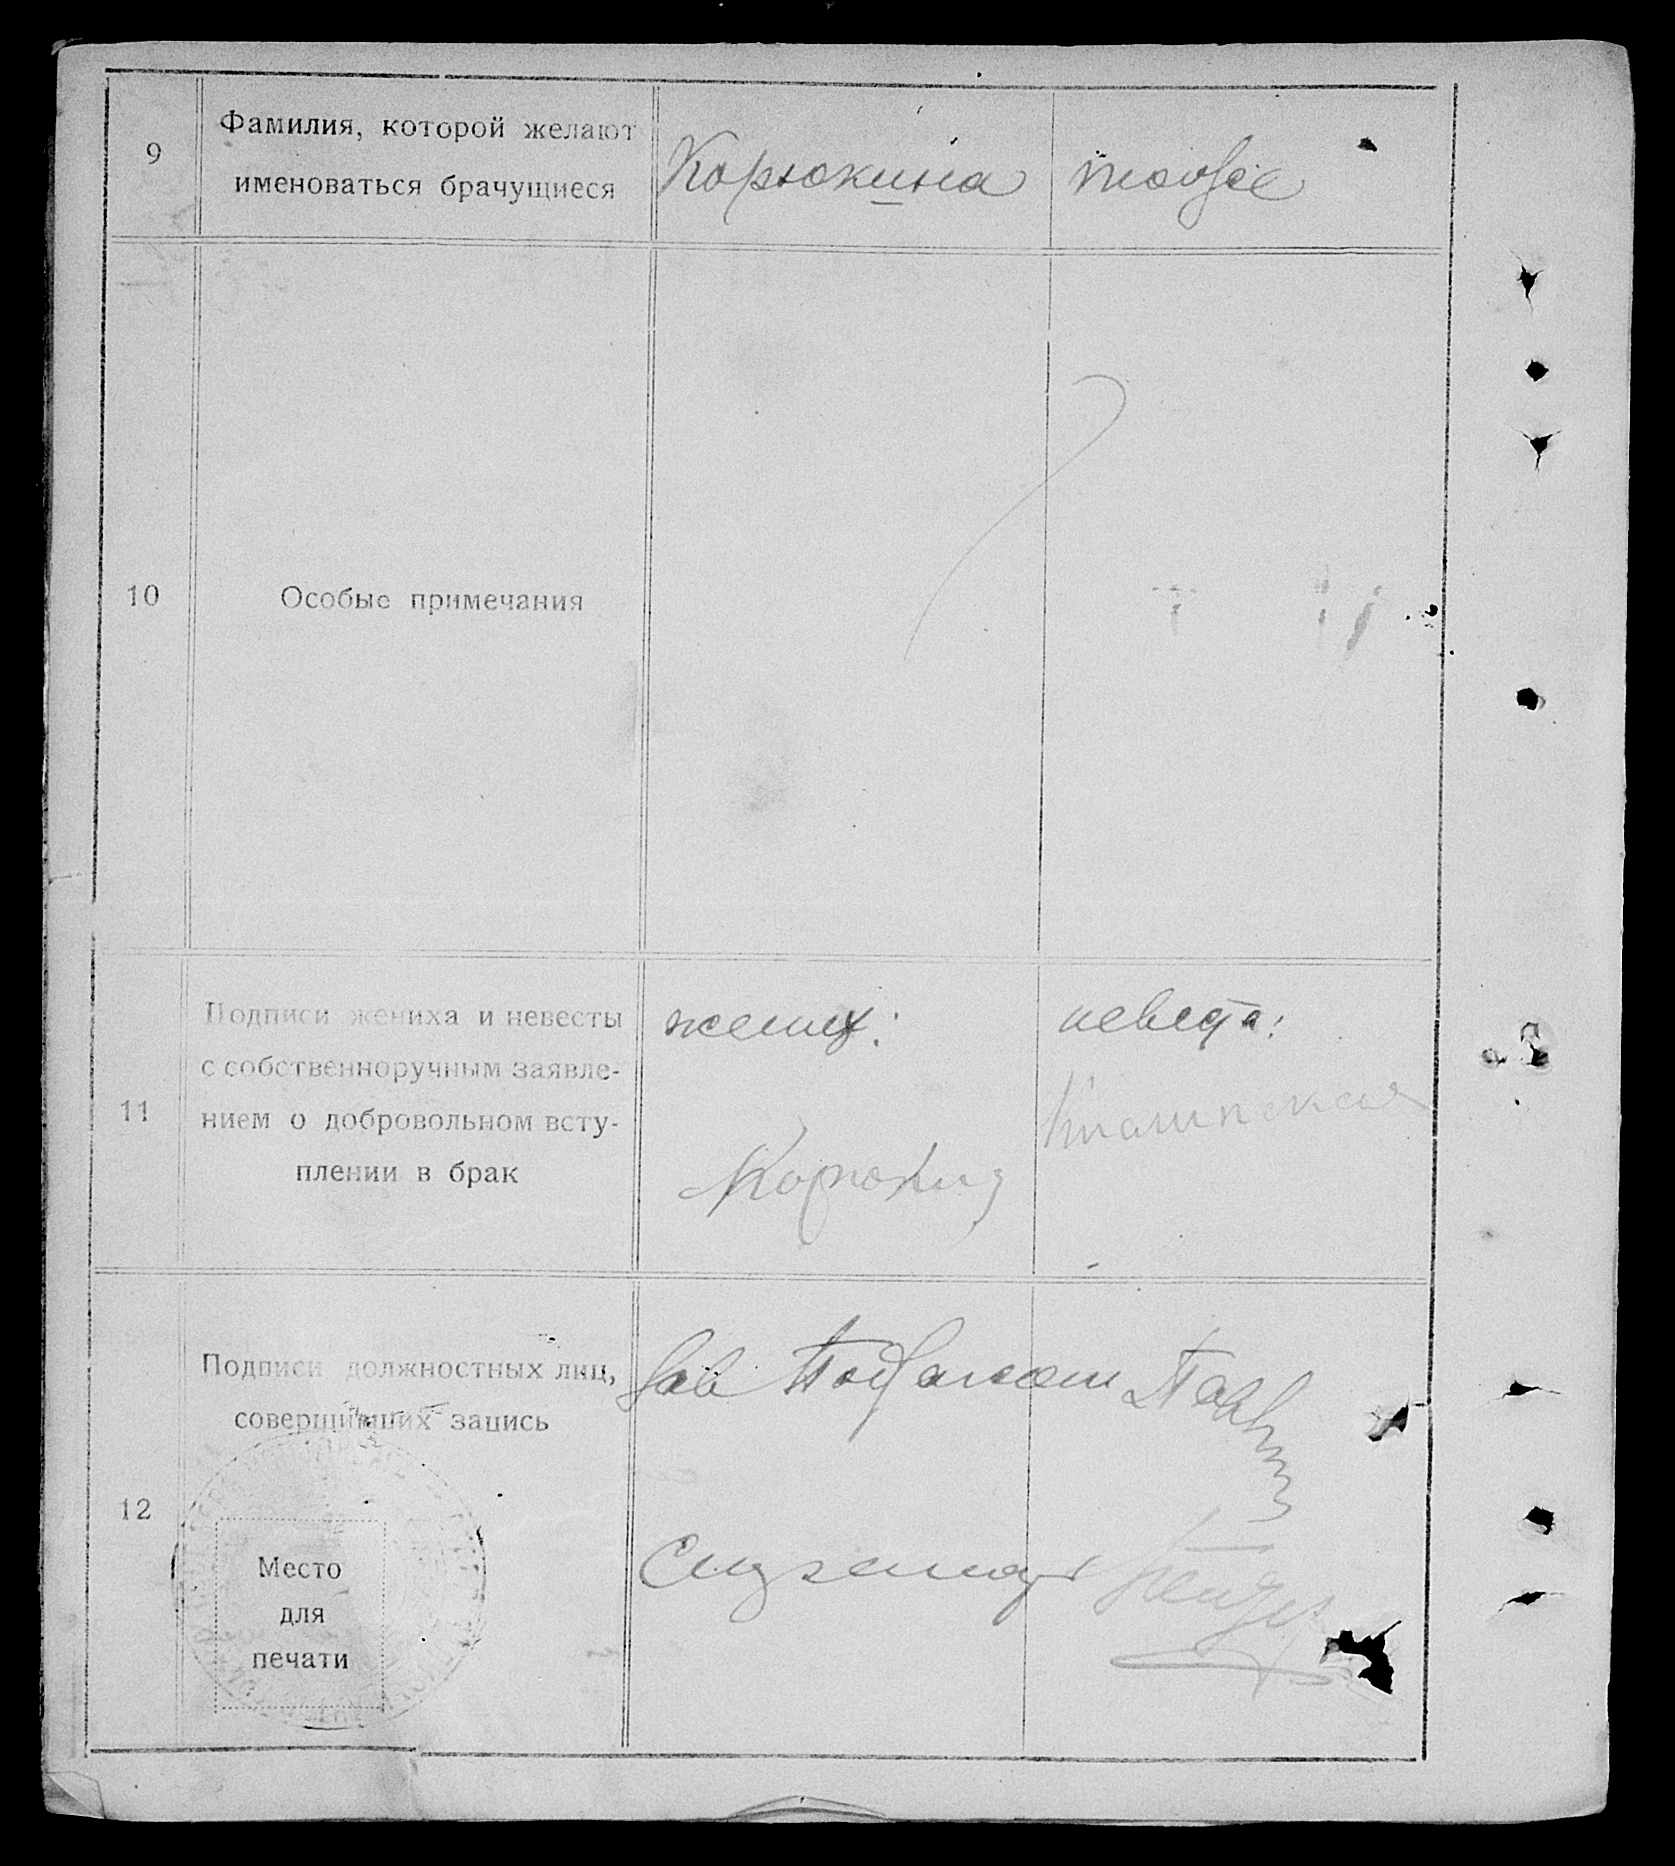 9
Фамилия, которой желают
именоваться брачущиеся
Корюкина
тоже
10
Особые примечания
11
Подписи жениха и невесты
с собственноручным заявле-
нием о добровольном всту-
плении в брак
жених:
невеста:
Корюкин
12
Подписи должностных лиц,
совершивших запись
Зав
Место
для
печати